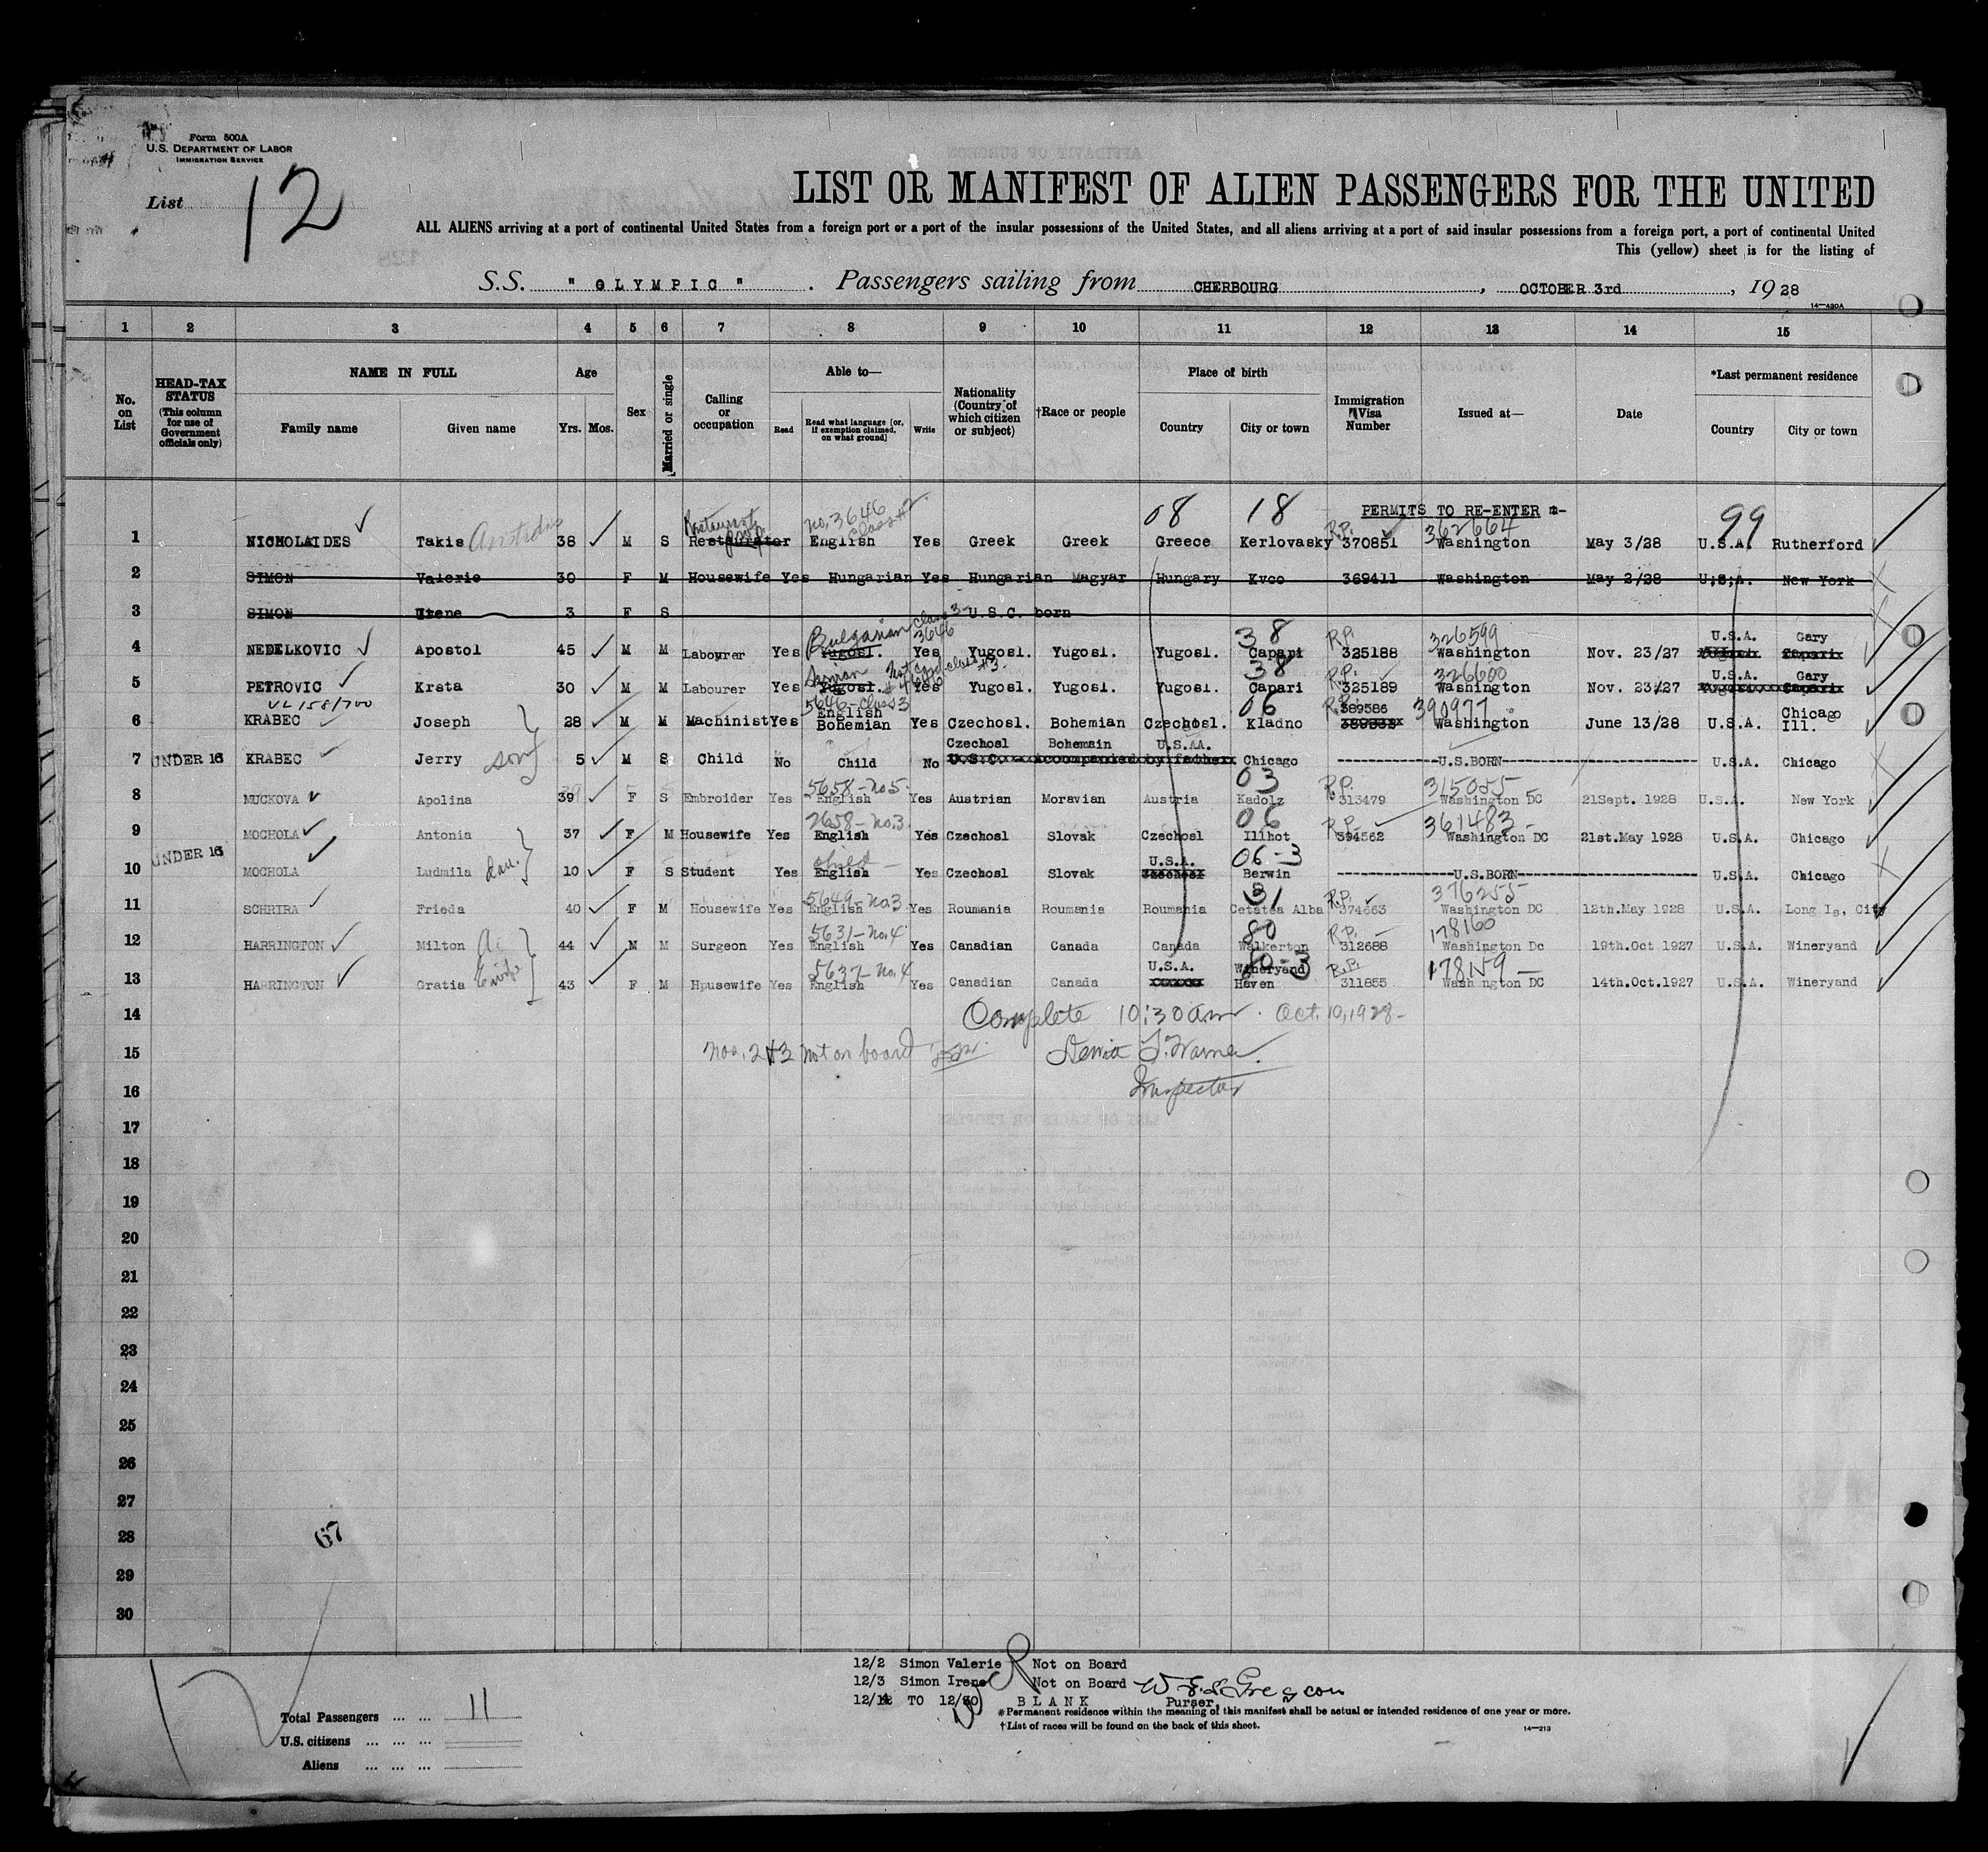 Form 500A
U.S. DEPARTMENT OF LABOR
IMMIGRATION SERVICE
List 12
LIST OR MANIFEST OF ALIEN PASSENGERS FOR THE UNITED
ALL ALIENS arriving at a port of continental United States from a foreign port or a port of the insular possessions of the United States, and all aliens arriving at a port of said insular possessions from a foreign port, a port of continental United
This (yellow) sheet is for the listing of
S.S. "OLYMPIC". Passengers sailing from CHERBOURG, OCTOBER 3rd, 1928
14—430A
1 2 3 4 5 6 7 8 9 10 11 12 13 14 15
No. on List
HEAD-TAX STATUS (This column for use of Government officials only)
NAME IN FULL
Family name Given name
Age
Yrs. Mos.
Sex
Married or single
Calling or occupation
Able to—
Read Read what language [or, if exemption claimed, on what ground] Write
Nationality (Country of which citizen or subject)
†Race or people
Place of birth
Country City or town
Immigration Visa Number
Issued at—
Date
*Last permanent residence
Country City or town
08 18 PERMITS TO RE-ENTER 99
Restaurant prop. no. 3646 class #2 R.P. 362664
1 NICHOLAIDES Takis 38 M S Restaurator English Yes Greek Greek Greece Kerlovasky 370851 Washington May 3/28 U.S.A. Rutherford
2 SIMON Valerie 30 F M Housewife Yes Hungarian Yes Hungarian Magyar Hungary Kvco 369411 Washington May 2/28 U;S;A. New York
3 SIMON Irene 3 F S U.S.C. born
Bulgarian class 3 3646 38 R.P. 326599 U.S.A. Gary
4 NEDELKOVIC Apostol 45 M M Labourer Yes Yugosl. Yes Yugosl. Yugosl. Yugosl. Capari 325188 Washington Nov. 23/27
38 R.P. 326600 U.S.A. Gary
5 PETROVIC Krsta 30 M M Labourer Yes Yugosl. Yes Yugosl. Yugosl. Yugosl. Capari 325189 Washington Nov. 23/27
VL 158/700 5646-class 3 English 06 R.P. 389586 390977 Chicago
6 KRABEC Joseph 28 M M Machinist Yes Bohemian Yes Czechosl. Bohemian Czechosl. Kladno Washington June 13/28 U.S.A. Ill.
son Czechosl Bohemain U.S.AA.
7 UNDER 16 KRABEC Jerry 5 M S Child No Child No U.S.C. Accompanied by father Chicago U.S.BORN U.S.A. Chicago
5658-No 5. 03 R.P. 315055
8 MUCKOVA Apolina 39 F S Embroider Yes English Yes Austrian Moravian Austria Kadolz 313479 Washington DC 21Sept. 1928 U.S.A. New York
2658-No. 3. 06 R.P. 361483
9 MOCHOLA Antonia 37 F M Housewife Yes English Yes Czechosl Slovak Czechosl Ilihot 394562 Washington DC 21st.May 1928 U.S.A. Chicago
UNDER 16 child U.S.A. 06-3
10 MOCHOLA Ludmila dau. 10 F S Student Yes English Yes Czechosl Slovak Czechosl Berwin U.S.BORN U.S.A. Chicago
5649-No. 3 31 R.P. 376255
11 SCHRIRA Frieda 40 F M Housewife Yes English Yes Roumania Roumania Roumania Cetatea Alba 374663 Washington DC 12th.May 1928 U.S.A. Long Is, City
5631-No. 4 80 R.P. 178160
12 HARRINGTON Milton 44 M M Surgeon Yes English Yes Canadian Canada Canada Walkerton 312688 Washington Dc 19th.Oct 1927 U.S.A. Wineryand
wife 5637-No. 4 U.S.A. Wineryand 80-3 R.P. 178159
13 HARRINGTON Gratia 43 F M Hpusewife Yes English Yes Canadian Canada Haven 311855 Washington DC 14th.Oct.1927 U.S.A. Wineryand
14 Complete 10:30 am. Oct. 10, 1928-
15 Nos. 2 & 3 Not on board
16 Inspector
17
18
19
20
21
22
23
24
25
26
27
28
29
30
67
12/2 Simon Valerie Not on Board
12/3 Simon Irene Not on Board
12/14 TO 12/30 BLANK Purser.
Total Passengers ... ... 11
U.S. citizens ... ... ...
Aliens ... ... ...
*Permanent residence within the meaning of this manifest shall be actual or intended residence of one year or more.
†List of races will be found on the back of this sheet.
14—213